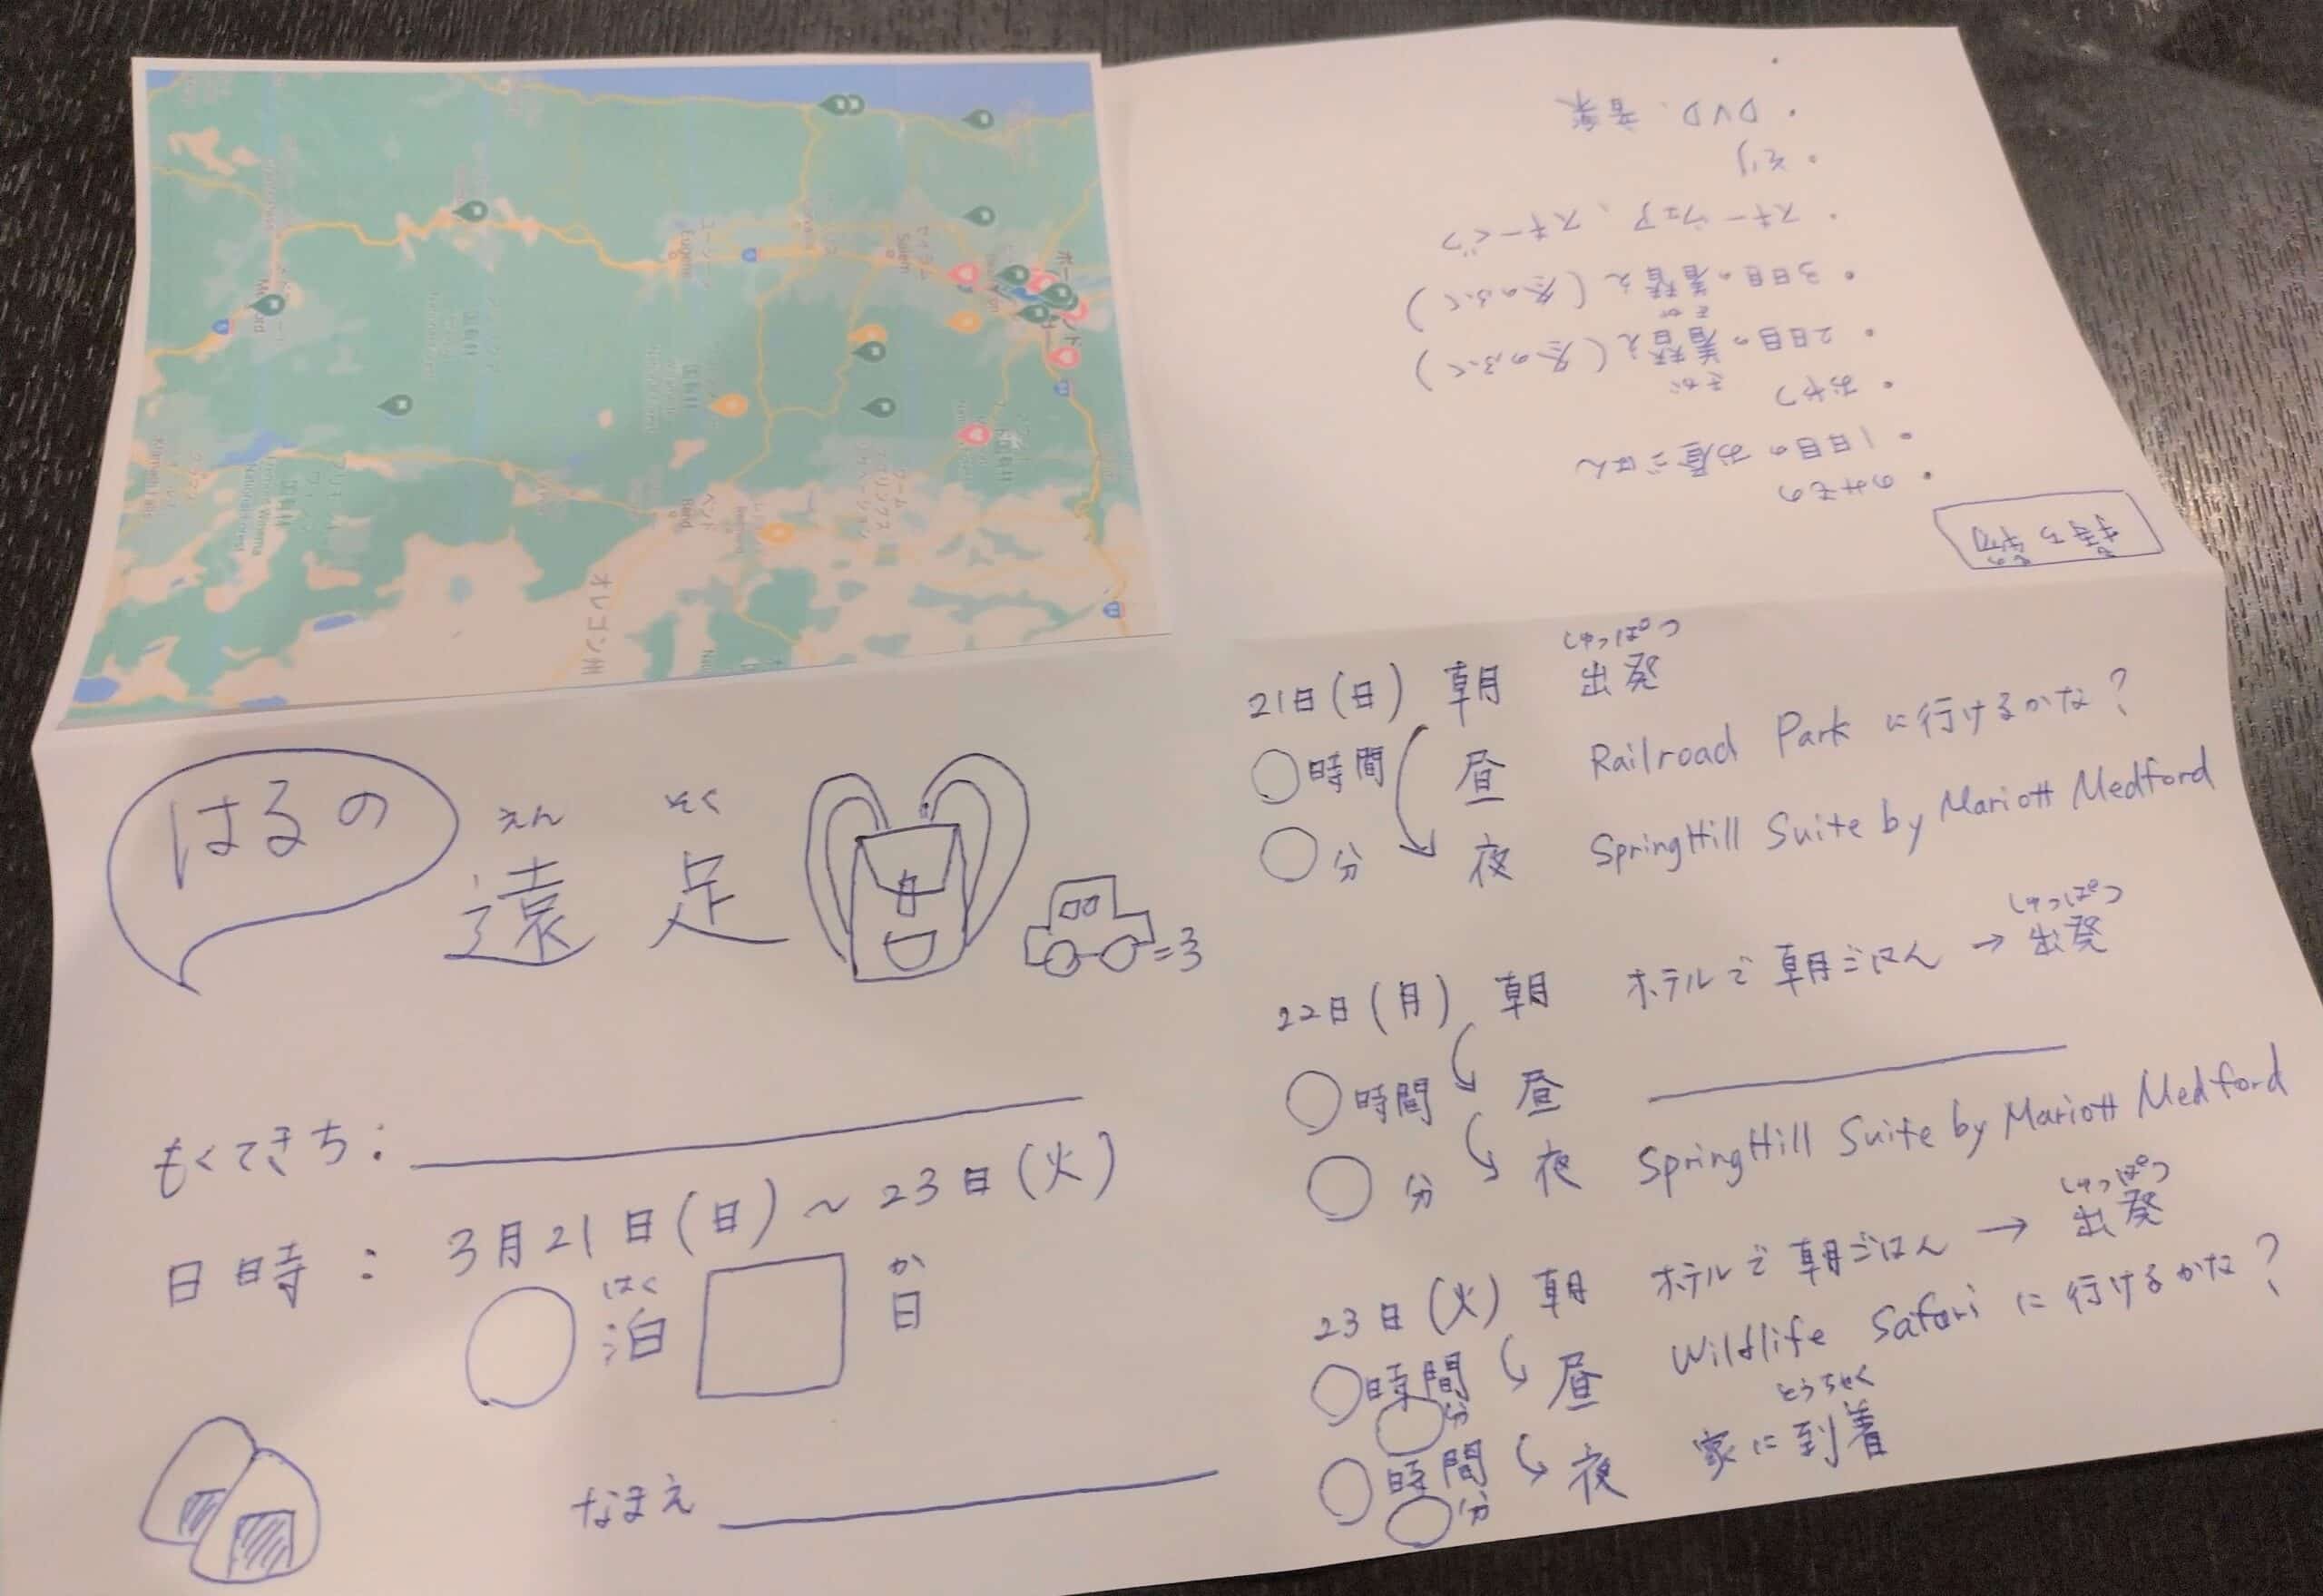 はるの
えん そく
遠足
=3
もくてきち：
日時： 3月21日(日)～23日(火)
はく か
泊 日
なまえ
しゅっぱつ
21日(日) 朝 出発
時間 昼 Railroad Park に行けるかな？
分 夜 SpringHill Suite by Mariott Medford
しゅっぱつ
22日(月) 朝 ホテルで朝ごはん → 出発
時間 昼
分 夜 SpringHill Suite by Mariott Medford
しゅっぱつ
23日(火) 朝 ホテルで朝ごはん → 出発
時間 昼 Wildlife Safari に行けるかな？
分
とうちゃく
時間 夜 家に到着
分
も もの
持ち物
・のみもの
・1日目のお昼ごはん
・おやつ
きが
・2日目の着替え(冬のふく)
きが
・3日目の着替え(冬のふく)
・スキーウェア、スキーぐつ
・そり
・DVD、音楽
・
オレゴン州
ポートランド
セイラム
Salem
ユージーン
Eugene
ベンド
Bend